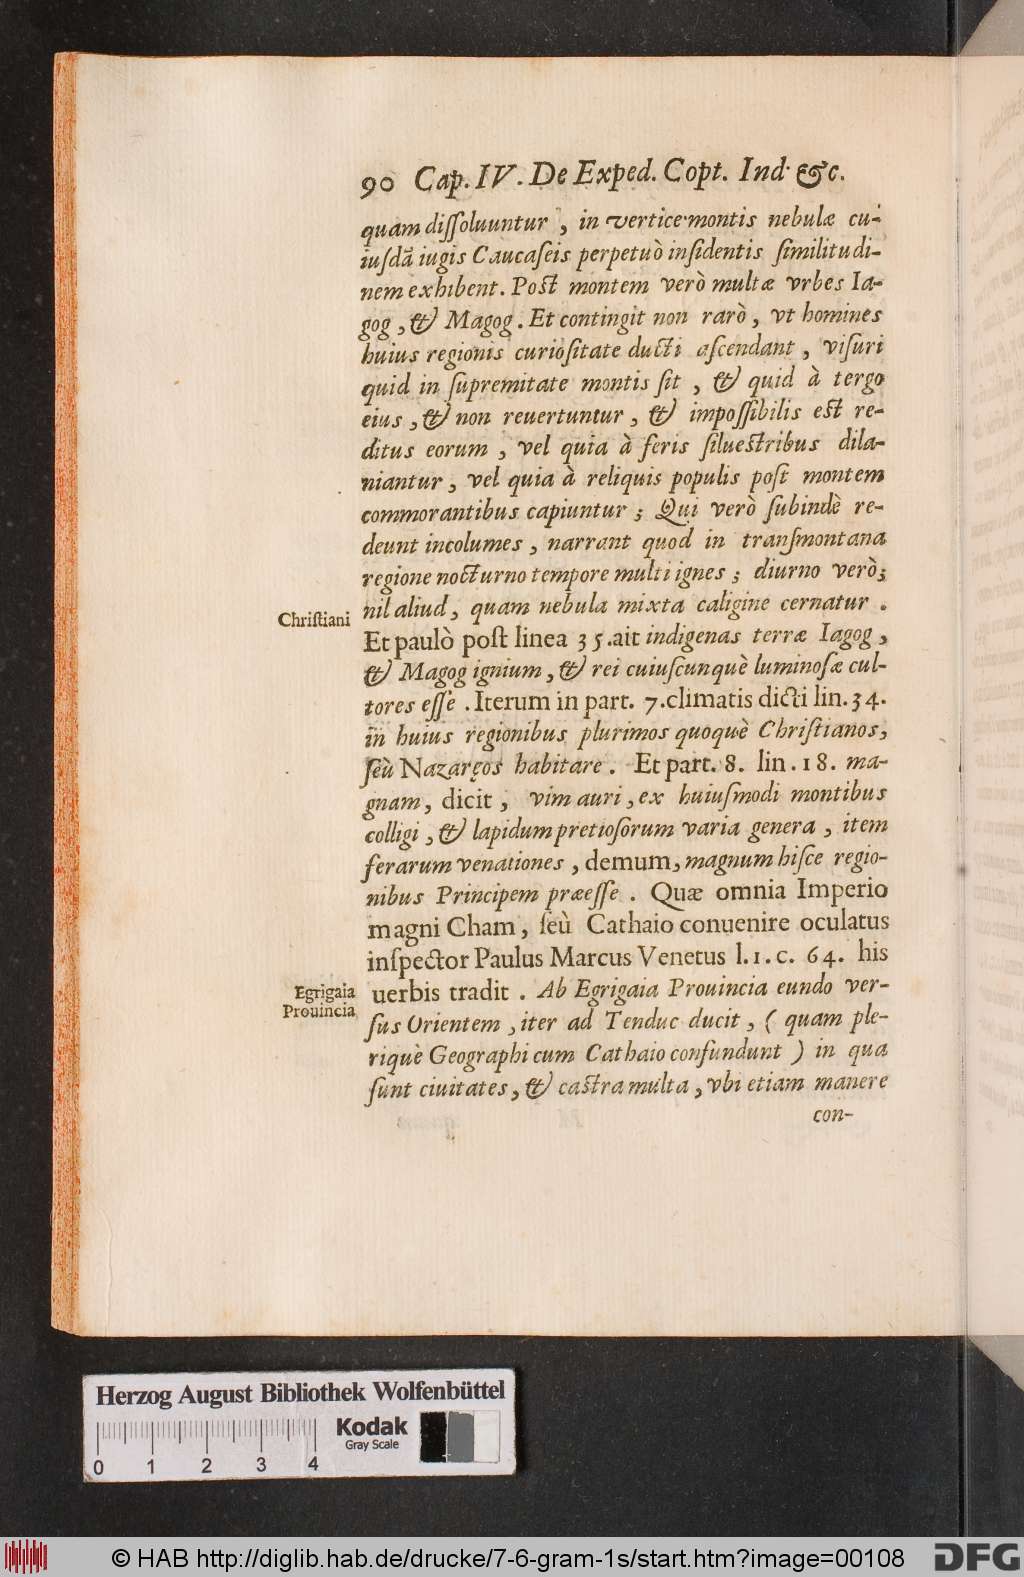 90 Cap. IV. De Exped. Copt. Ind. &c.
quam diſſoluuntur, in vertice montis nebulæ cu-
iuſdã iugis Caucaſeis perpetuò inſidentis ſimilitudi-
nem exhibent. Poſt montem verò multæ vrbes Ia-
gog, & Magog. Et contingit non rarò, vt homines
huius regionis curioſitate ducti aſcendant, viſuri
quid in ſupremitate montis ſit, & quid à tergo
eius, & non reuertuntur, & impoſſibilis eſt re-
ditus eorum, vel quia à feris ſilueſtribus dila-
niantur, vel quia à reliquis populis poſt montem
commorantibus capiuntur; Qui verò ſubindè re-
deunt incolumes, narrant quod in tranſmontana
regione nocturno tempore multi ignes; diurno verò;
Chriſtiani
nil aliud, quam nebula mixta caligine cernatur.
Et paulò poſt linea 35. ait indigenas terræ Iagog,
& Magog ignium, & rei cuiuſcunquè luminoſæ cul-
tores eſſe. Iterum in part. 7. climatis dicti lin. 34.
in huius regionibus plurimos quoquè Chriſtianos,
ſeù Nazaręos habitare. Et part. 8. lin. 18. ma-
gnam, dicit, vim auri, ex huiuſmodi montibus
colligi, & lapidum pretioſorum varia genera, item
ferarum venationes, demum, magnum hiſce regio-
nibus Principem præeſſe. Quæ omnia Imperio
magni Cham, ſeù Cathaio conuenire oculatus
inſpector Paulus Marcus Venetus l. 1. c. 64. his
Egrigaia
Prouincia
uerbis tradit. Ab Egrigaia Prouincia eundo ver-
ſus Orientem, iter ad Tenduc ducit, (quam ple-
riquè Geographi cum Cathaio confundunt) in qua
ſunt ciuitates, & caſtra multa, vbi etiam manere
con-
Herzog August Bibliothek Wolfenbüttel
Kodak
Gray Scale
0 1 2 3 4
© HAB http://diglib.hab.de/drucke/7-6-gram-1s/start.htm?image=00108
DFG